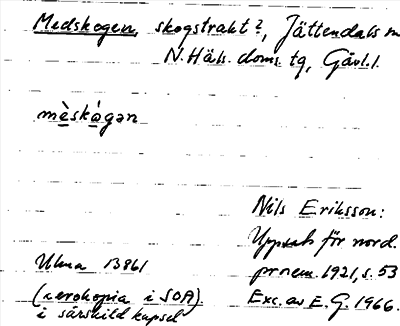 Medskogen, skogstrakt?, Jättendals
N. Häls. doms. tg, Gävl. l.
mèskógan
Nils Eriksson:
Uppsats för nord.
prnem. 1921, s. 53
Exc. av E. G. 1966.
Ulma 13861
(xerokopia i SOA)
i särskild kapsel